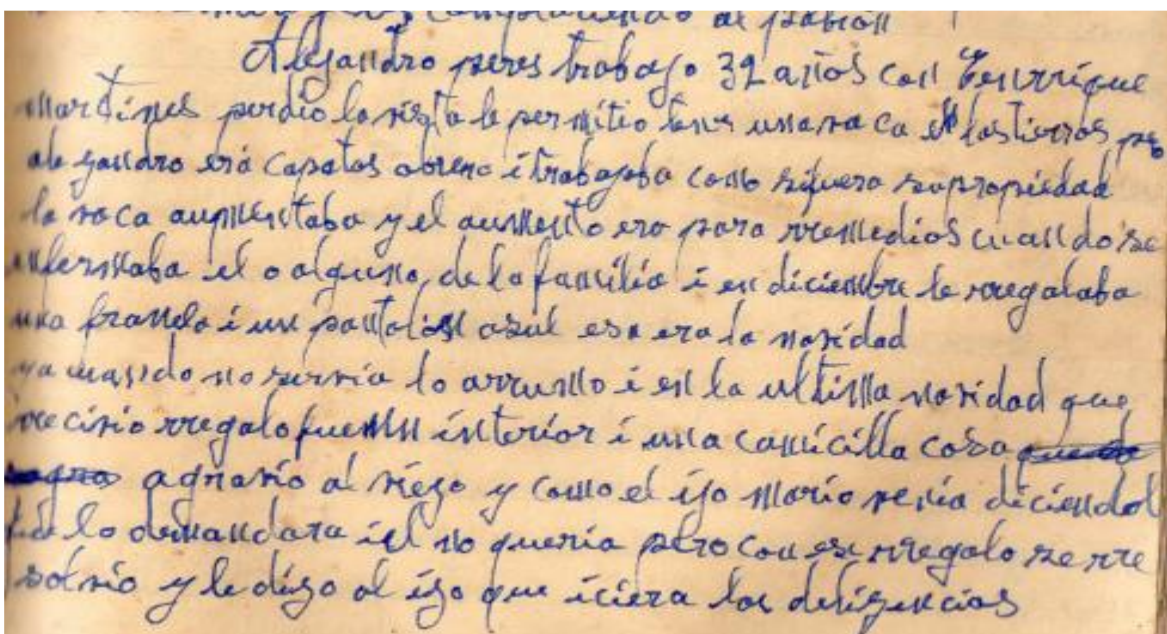 complaciendo al patron
Alejandro peres trabajo 32 años con Henrrique
martines perdio la vista le permitio tener una vaca en las tierras pero
alegandro era capatas obrero i trabajaba como si fuera su propiedad
la vaca aumentaba y el aumento era para rremedios cuando se
enfermaba el o alguno de la familia i en diciembre le rregalaba
una franela i un pantalon asul esa era la navidad
ya cuando no servia lo arrumo i en la ultima navidad que
rrecivio rregalo fue un interior i una camicilla cosa
agravio al viejo y como el ijo mario venia diciendol
que lo demandara i el no queria pero con ese rregalo se rre
solvio y le dijo al ijo que iciera las deligencias